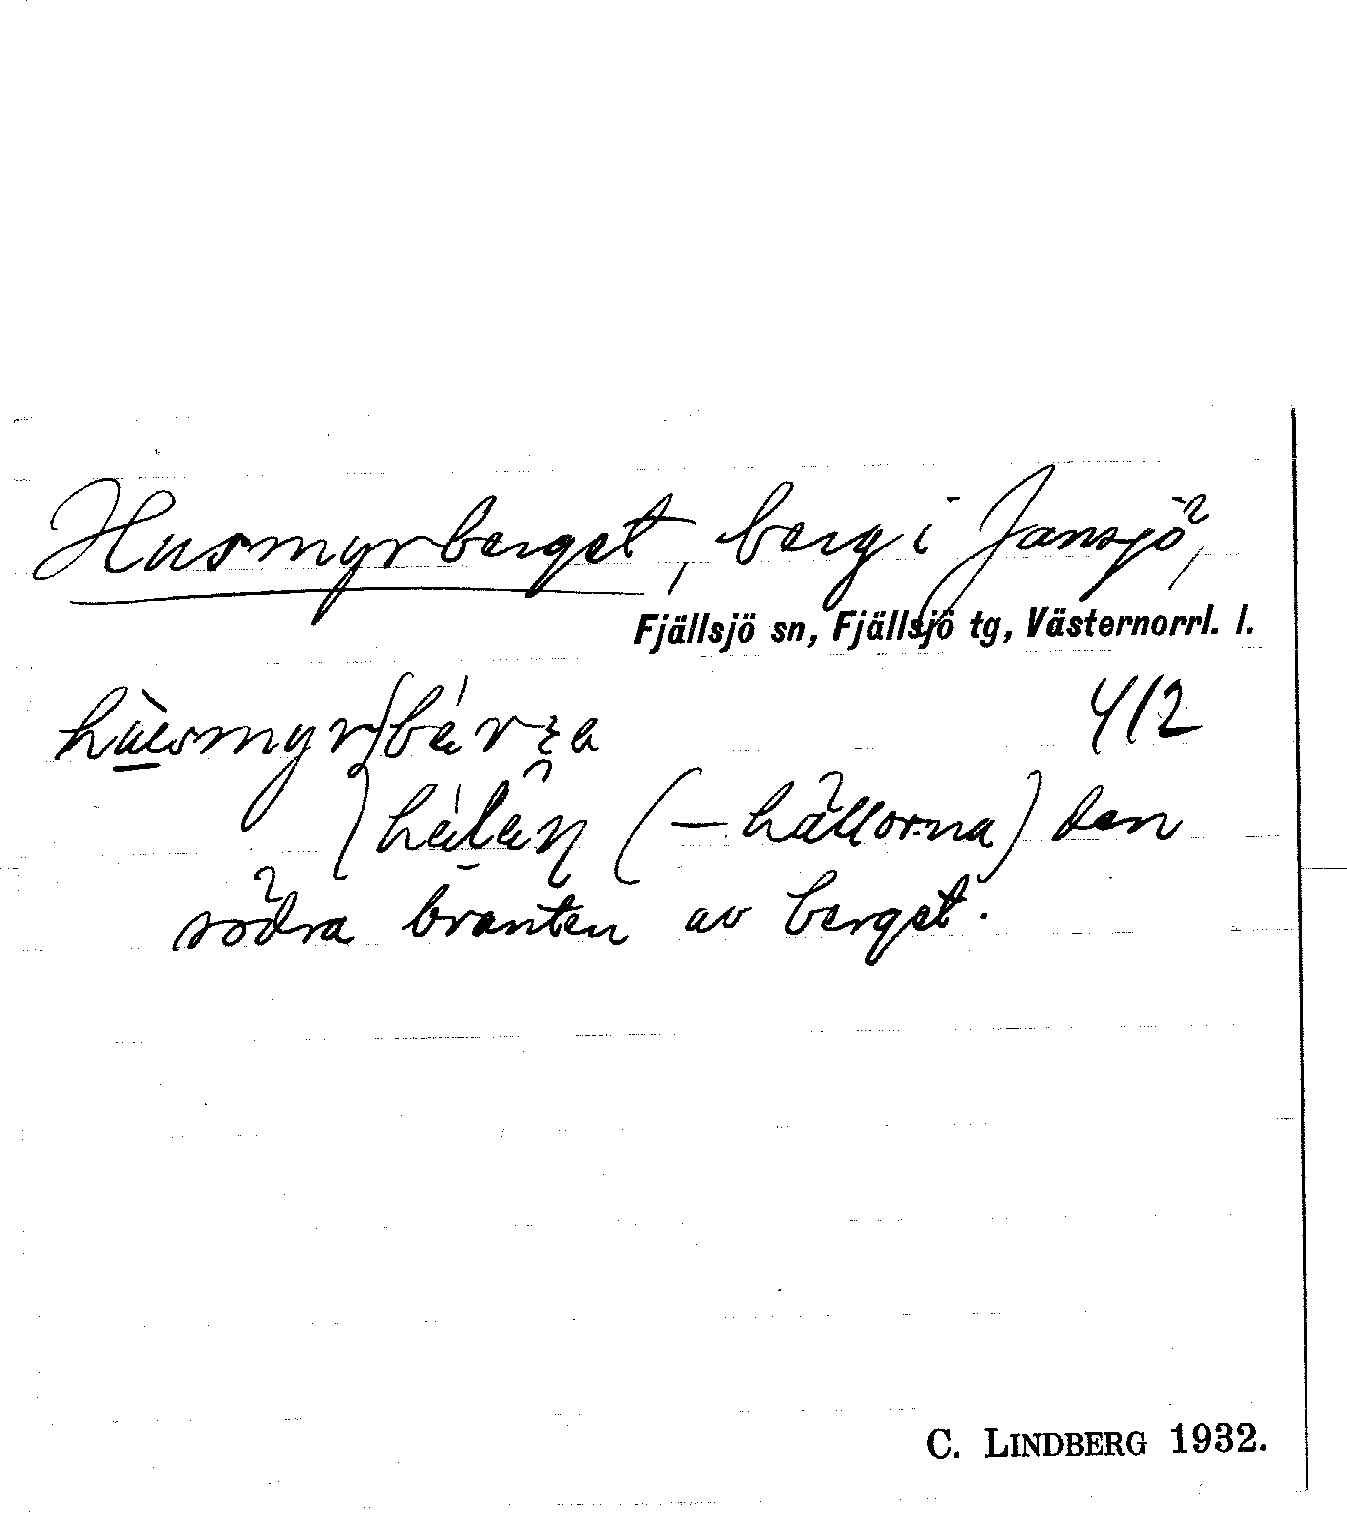 Husmyrberget, berg i Jansjö,
Fjällsjö sn, Fjällsjö tg, Västernorrl. l.
412
(—hällorna) den
södra branten av berget.
C. LINDBERG 1932.